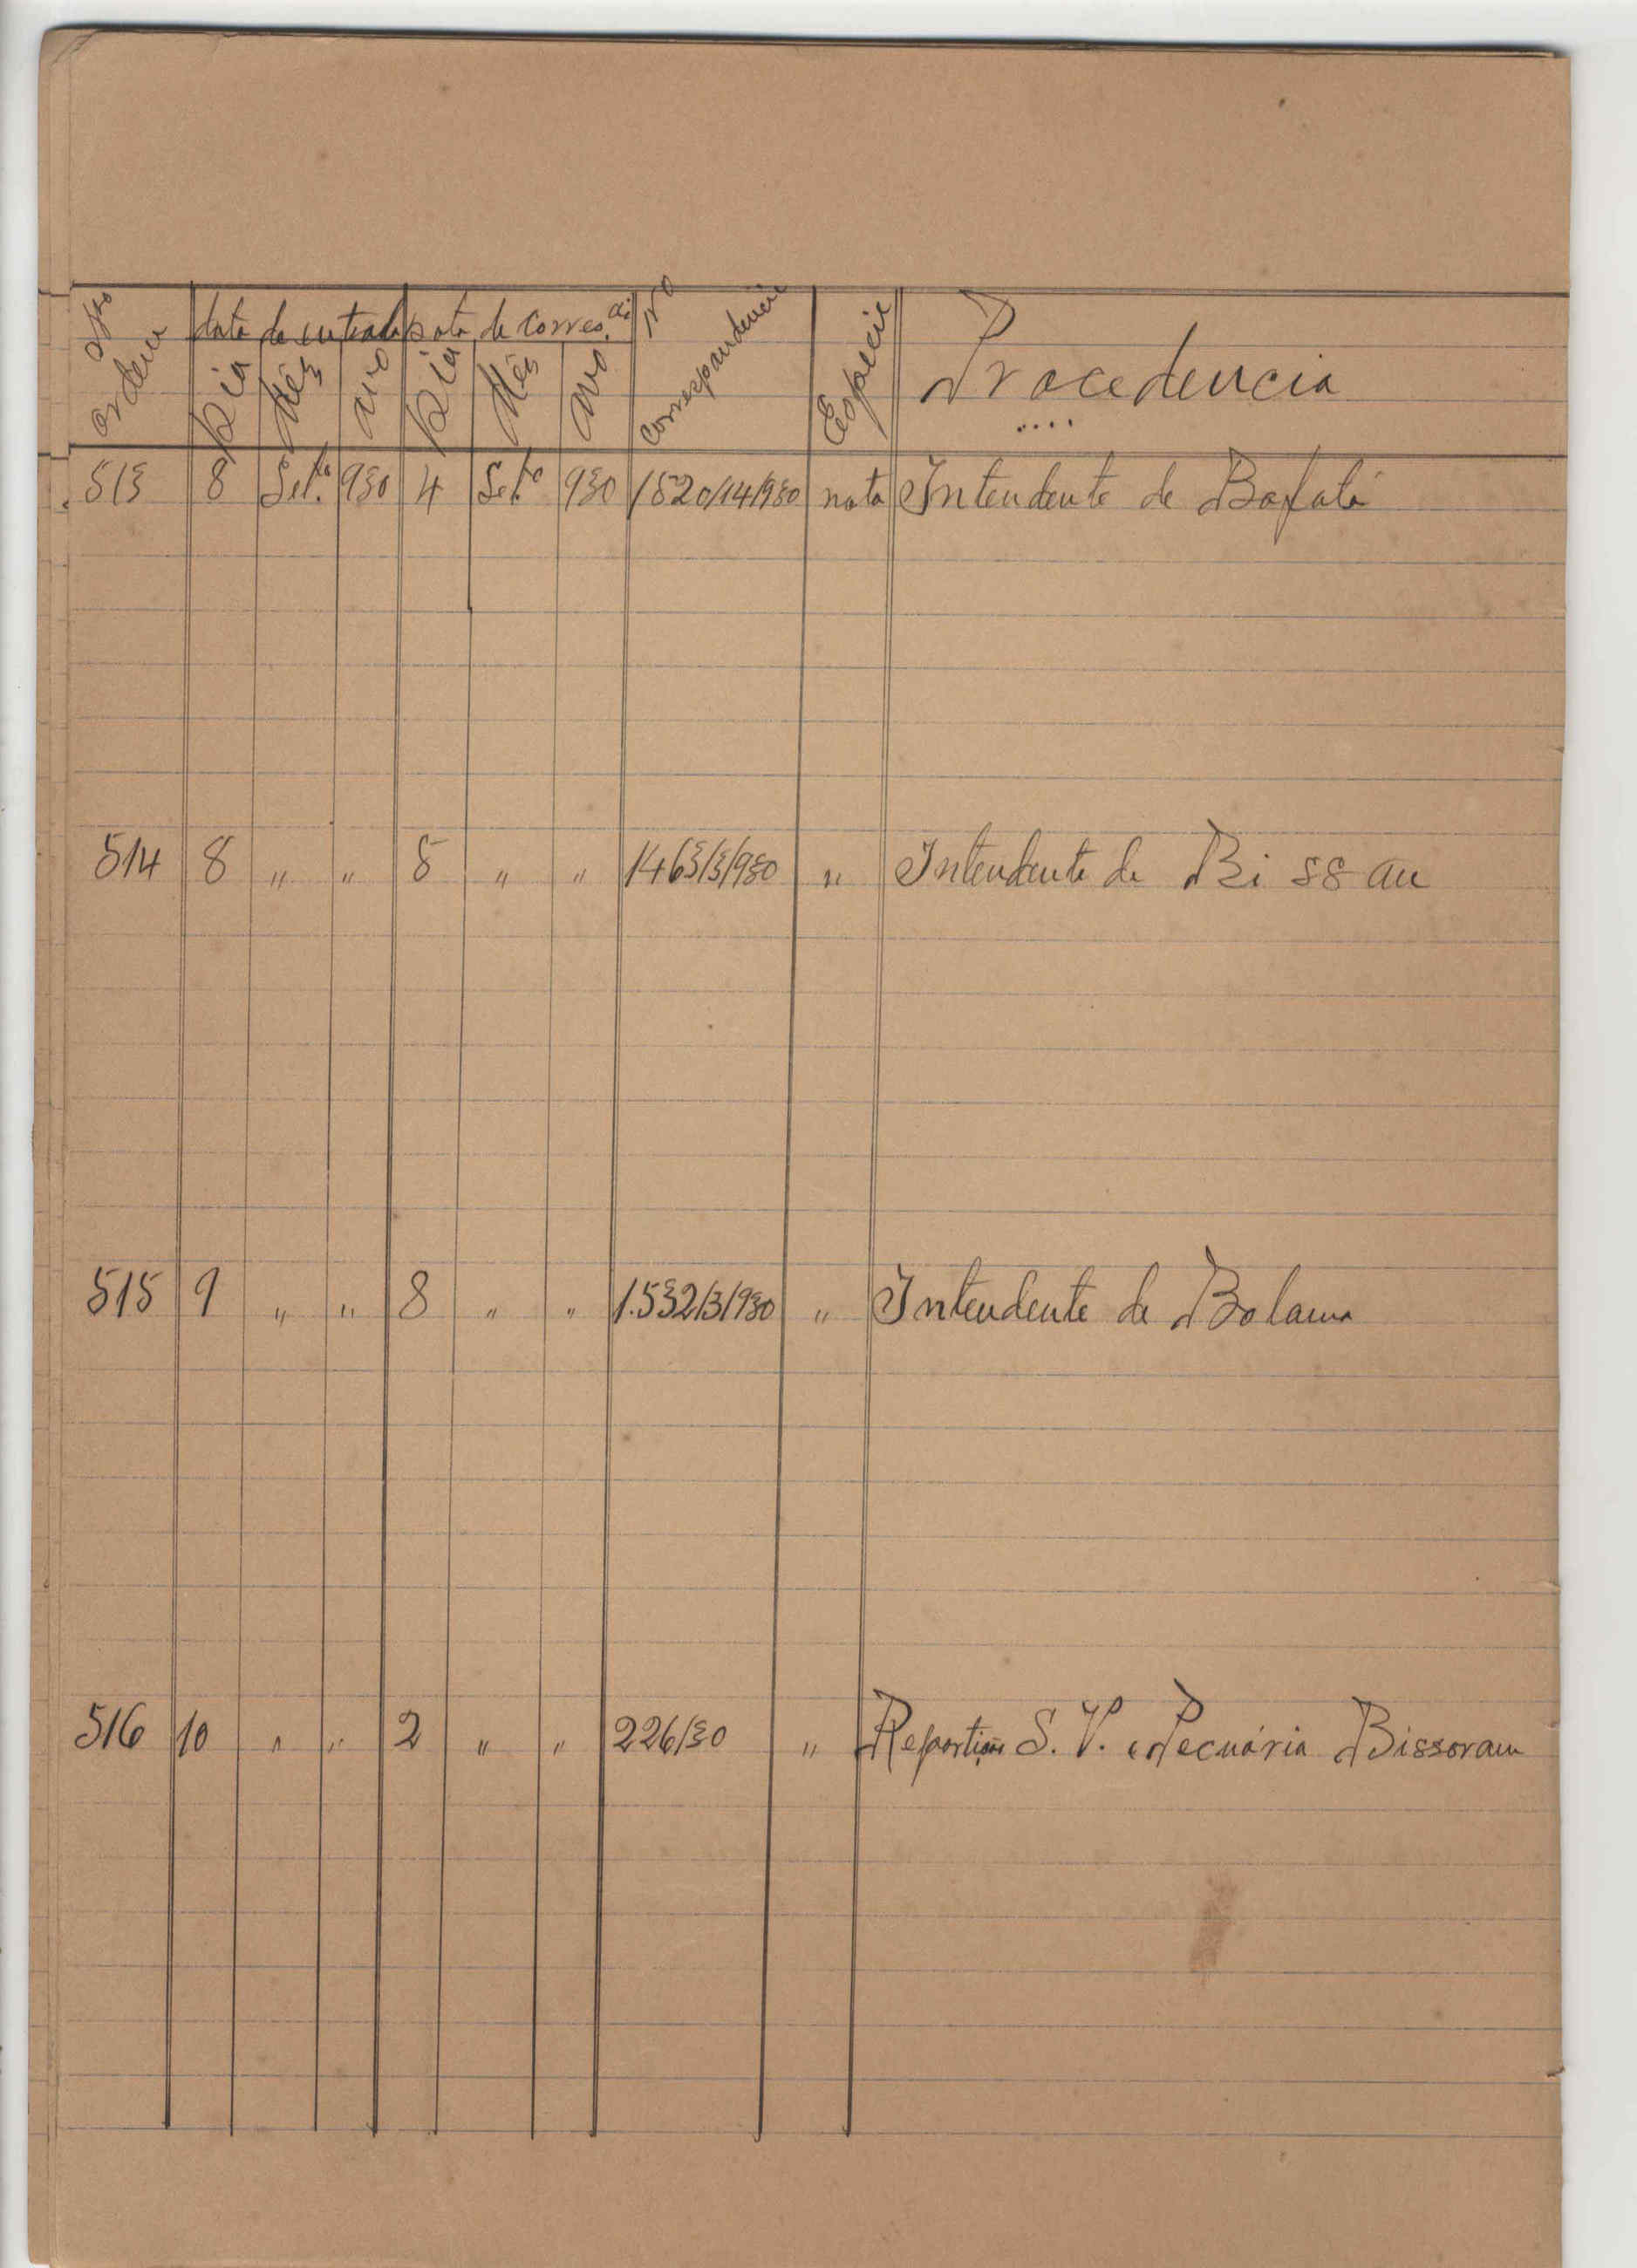 Nº ordem data de entrada Data de Corres.ci Nº correspondencia Especie Procedencia
Dia Mês ano Dia Mês ano
513 8 Set.º 930 4 Set.º 930 1520/14/930 nota Intendente de Bafatá
514 8 " " 5 " " 1463/3/930 " Intendente de Bissau
515 9 " " 8 " " 1.532/3/930 " Intendente de Bolama
516 10 " " 2 " " 226/30 " S. V. Pecuária Bissoram